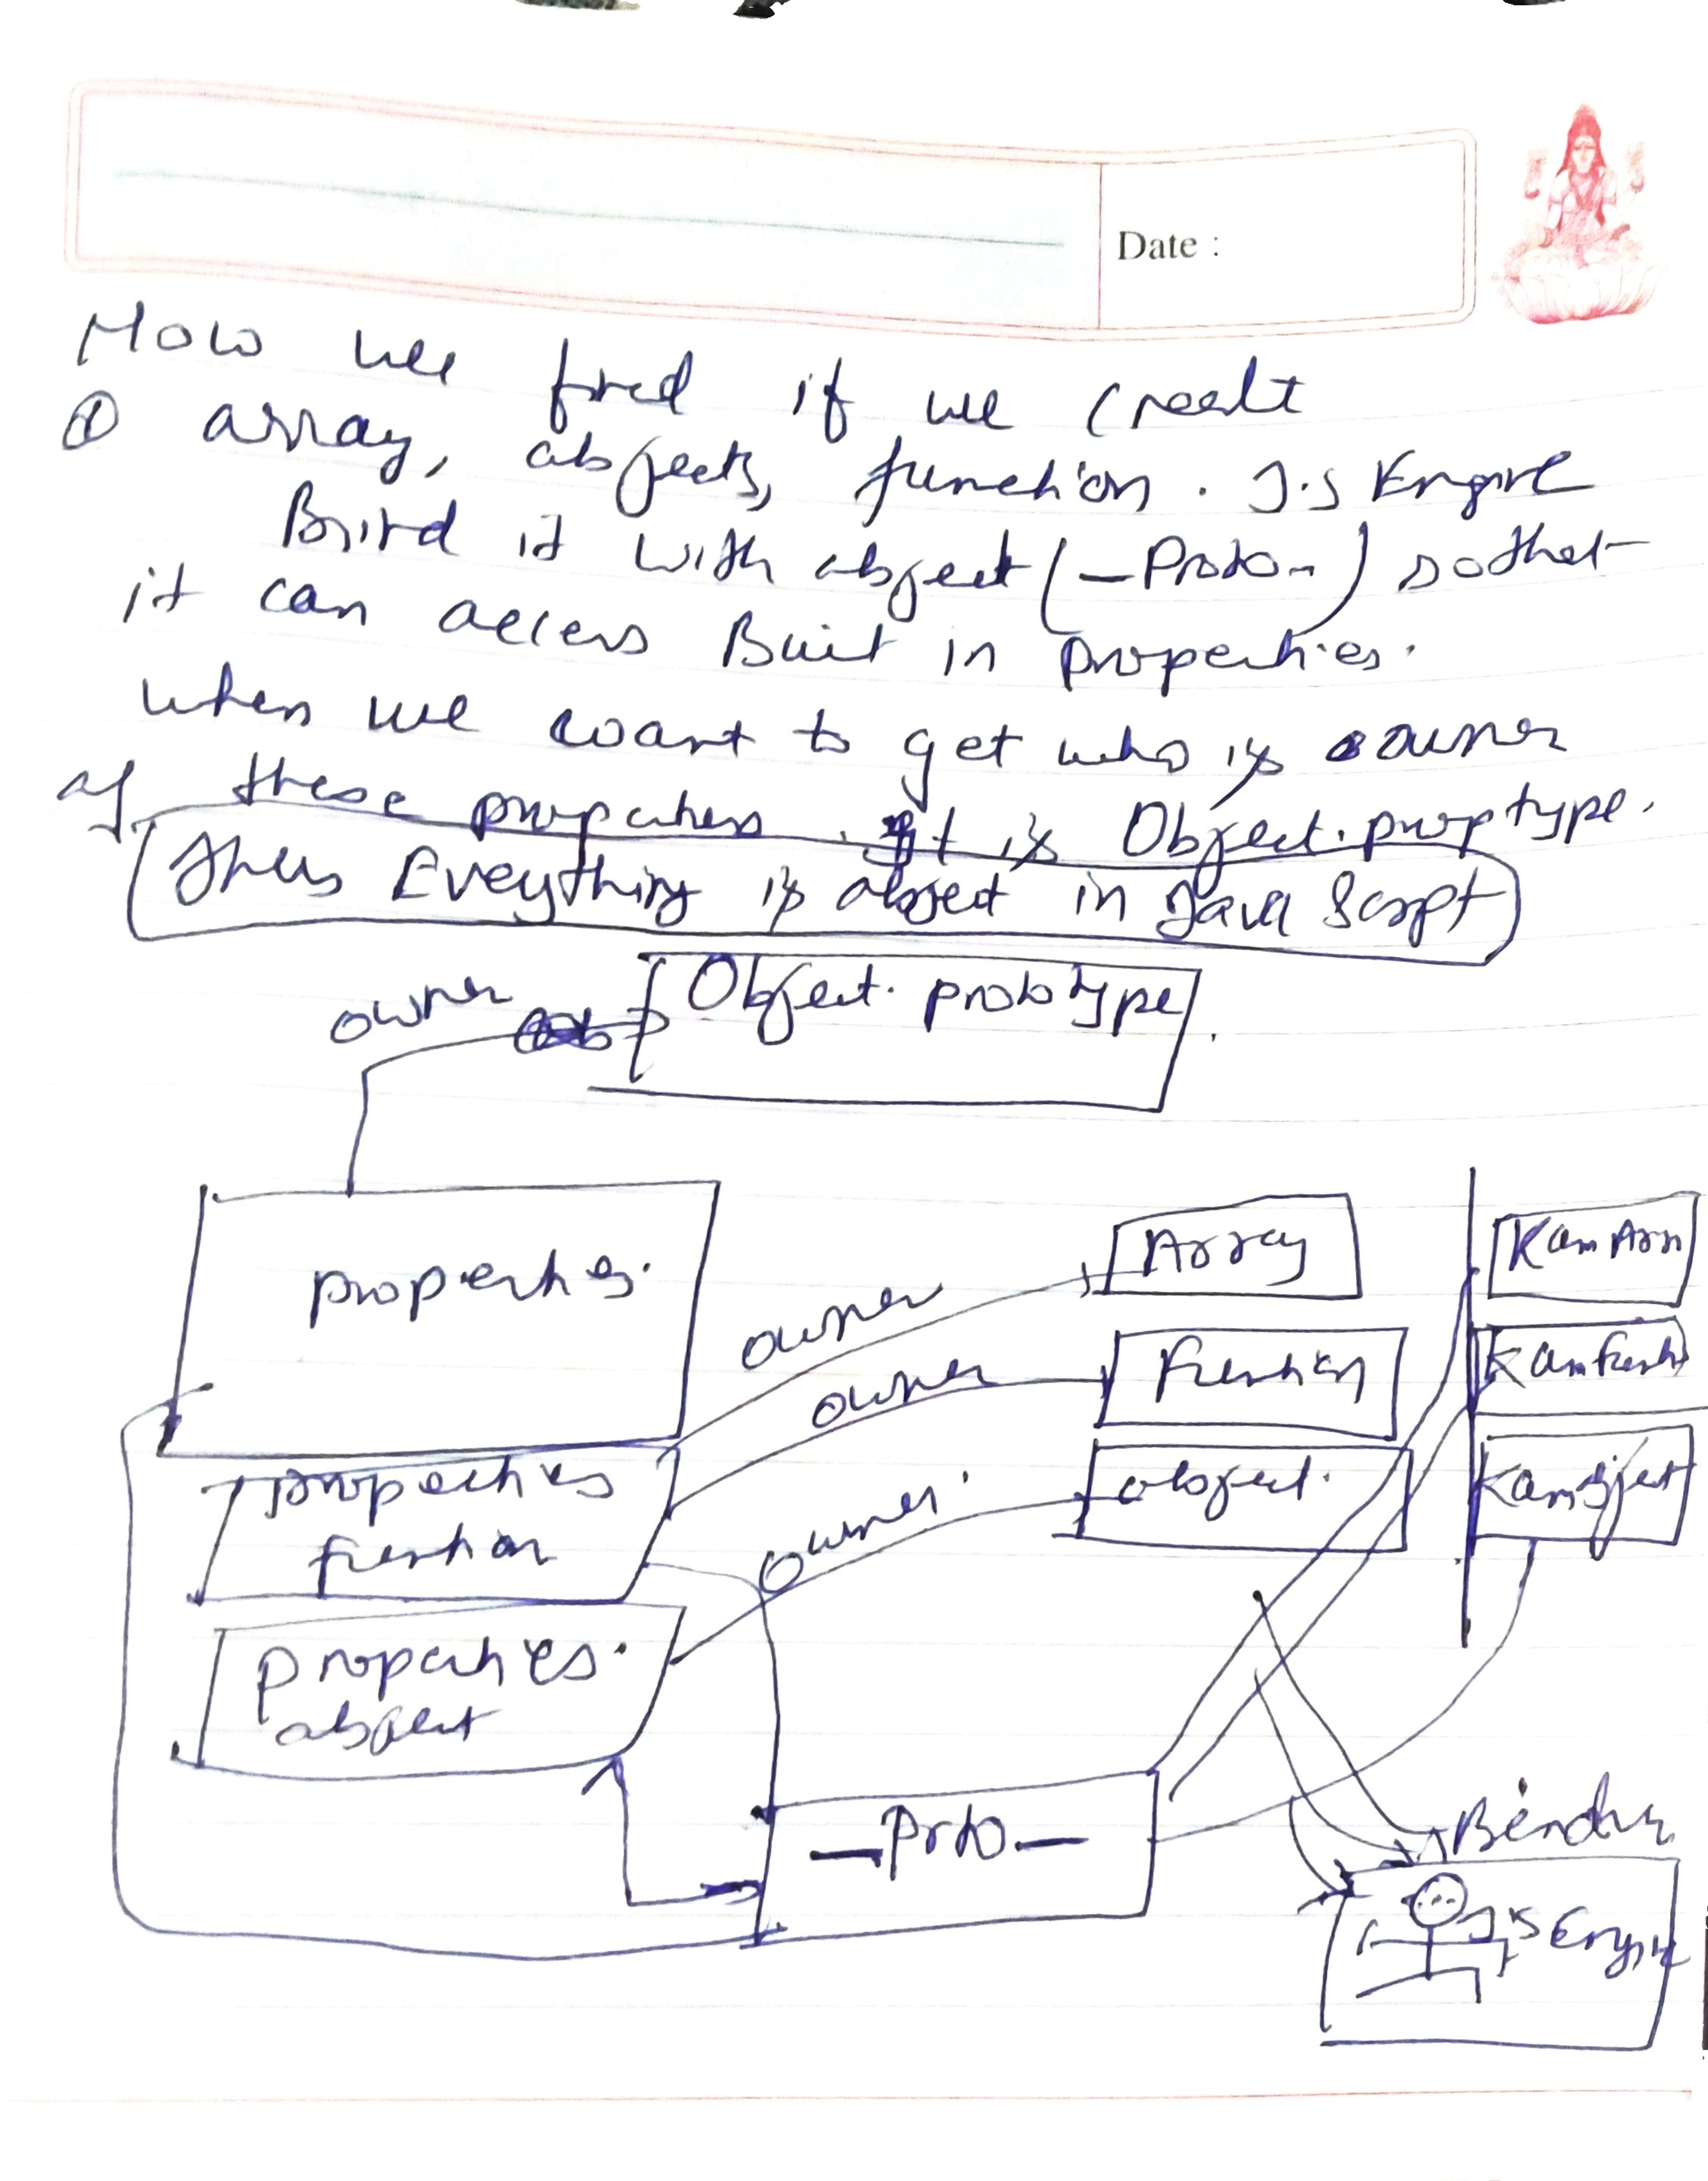 Date :
How we find if we create
① array, objects, function. J.S Engine
Bind it with object (_Proto_) so that
it can access Buit in properties.
when we want to get who is owner
of these properties. It is Object.proptype.
Thus Eveything is object in Java Script
owner
Object. prototype
properties.
Array
Kam Arr
owner
Function
owner
properties
function
object.
owner.
properties.
object
_Prto_
JS Engin